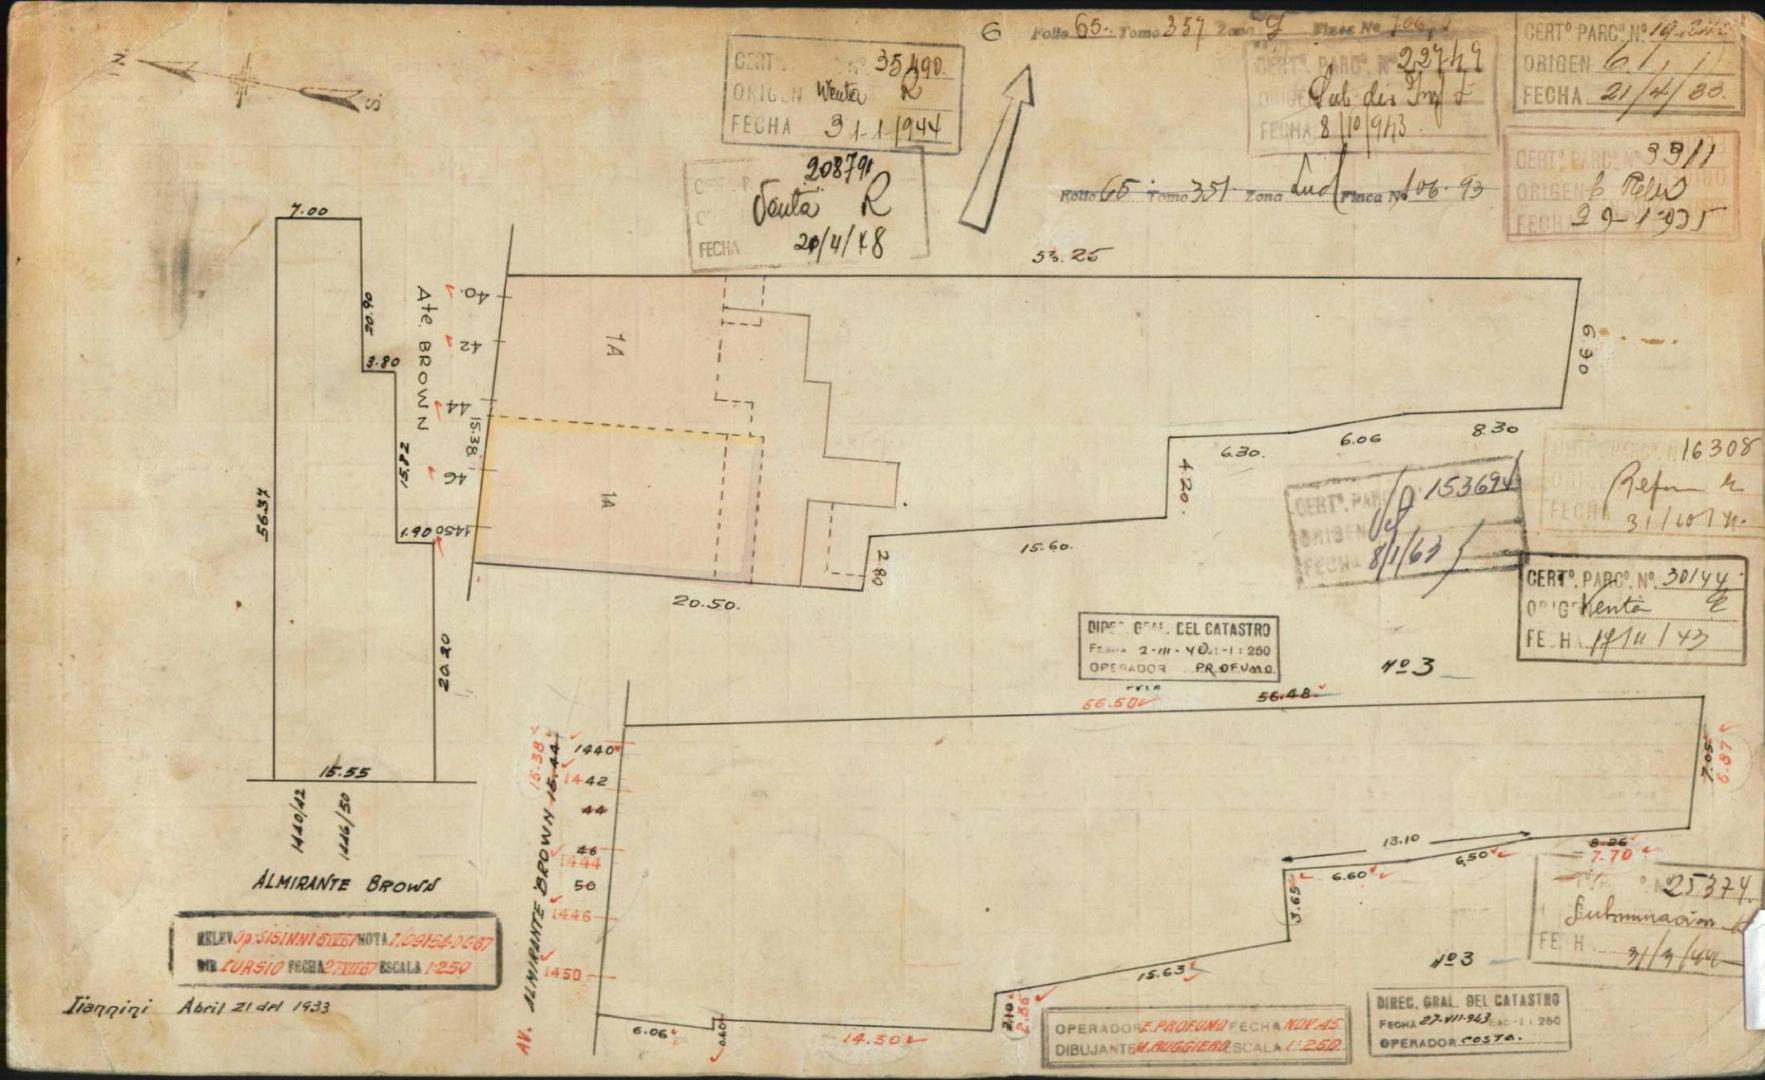 6 Folio 65. Tomo 357 Zona Finca Nº
CERTº PARCº. Nº 19
ORIGEN 61
FECHA 21/4/33.
CERT Nº 35490.
ORIGEN Venta R
FECHA 31-1-1944
CERTº. PARCº. Nº 22749
ORIGEN Sub div
FECHA 8/10/943.
208791
Venta R
FECHA 20/4/48
CERTº PARCº. Nº 3911
ORIGEN
FECHA 29-1-935
Folio 65 Tomo 351. Zona Sud Finca Nº 106.93
N S
7.00
20.90
3.80
15.72
1.90
56.37
20.20
15.55
1440/42
1446/50
ALMIRANTE BROWN
Ate. BROWN
40.
42
44
46
1450
15.38
53.25
6.90
8.30
6.06
6.30.
4.20.
15.60.
2.80
20.50.
1A
1A
CERTº. PARCº. Nº 16308
Refor
FECHA 31/10/
CERTº. PARCº 153694
ORIGEN
FECHA 8/1/63
CERTº. PARCº. Nº. 30144
ORIGEN Venta
FECHA 17/11/43
DIREC. GRAL. DEL CATASTRO
FECHA 2-III-40 ESC-1:250
OPERADOR PROFUMO
Nº3
56.50
56.48
AV. ALMIRANTE BROWN 15.44
15.38
1440
1442
44
46
1444
50
1446
1450
7.05
6.87
13.10
8.26
7.70
6.50
6.60
3.65
15.63
2.10
2.36
14.30
0.60
6.06
CERTº. PARCº. Nº 25374.
Subdivision
FECHA 31/3/44
Nº3
RELEV Op. SISINNI 6 IX 67 NOTA 7.09154-DC-67
DIB. CURSIO FECHA 27 VII 67 ESCALA 1:250
Iiannini Abril 21 del 1933
OPERADOR E. PROFUMO FECHA NOV. 45
DIBUJANTE M. RUGGIERO ESCALA 1:250
DIREC. GRAL. DEL CATASTRO
FECHA 27-VII-943 ESC-1:250
OPERADOR COSTA.